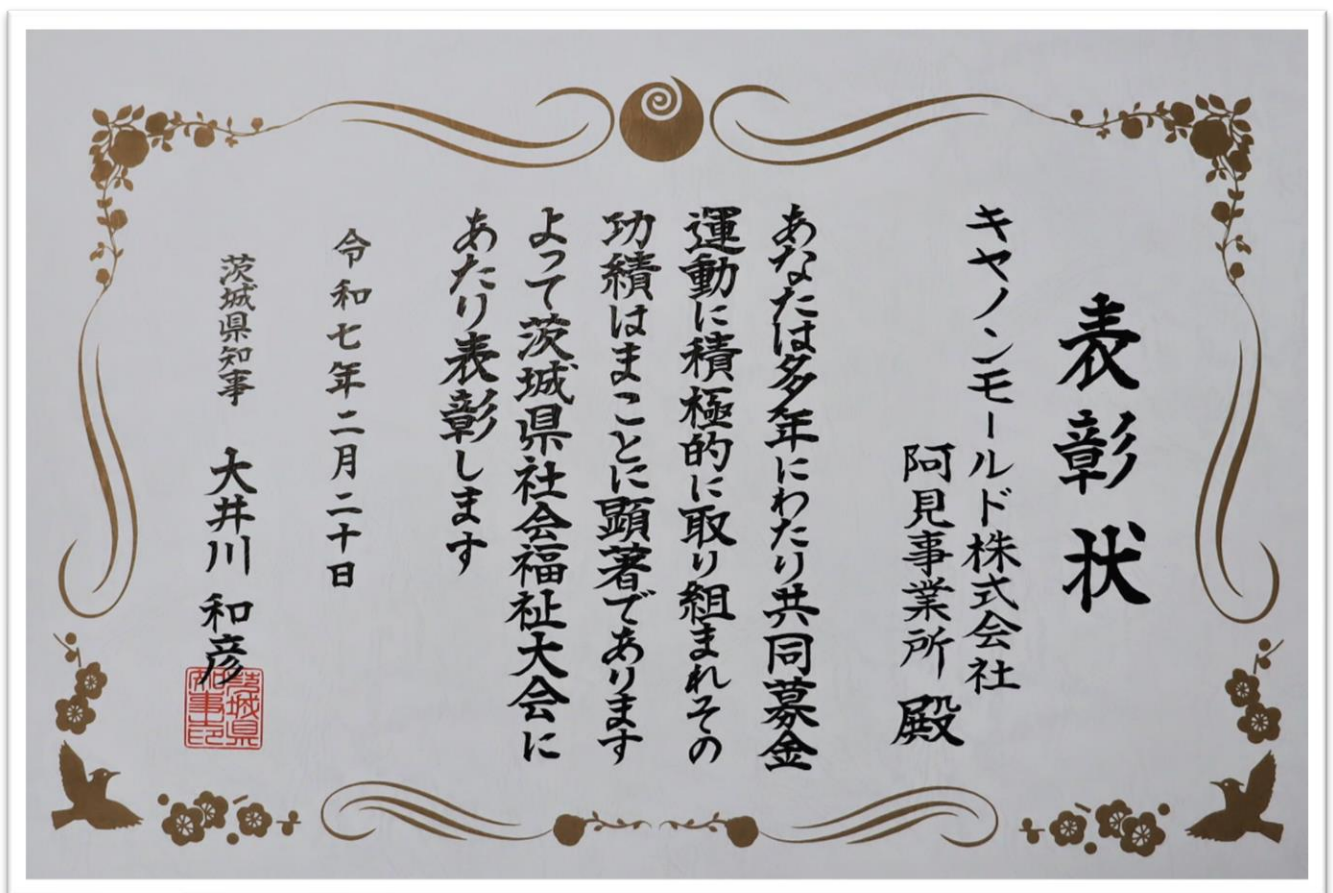 表彰状
キヤノンモールド株式会社
阿見事業所 殿
あなたは多年にわたり共同募金
運動に積極的に取り組まれその
功績はまことに顕著であります
よって茨城県社会福祉大会に
あたり表彰します
令和七年二月二十日
茨城県知事 大井川 和彦
茨城県
知事印